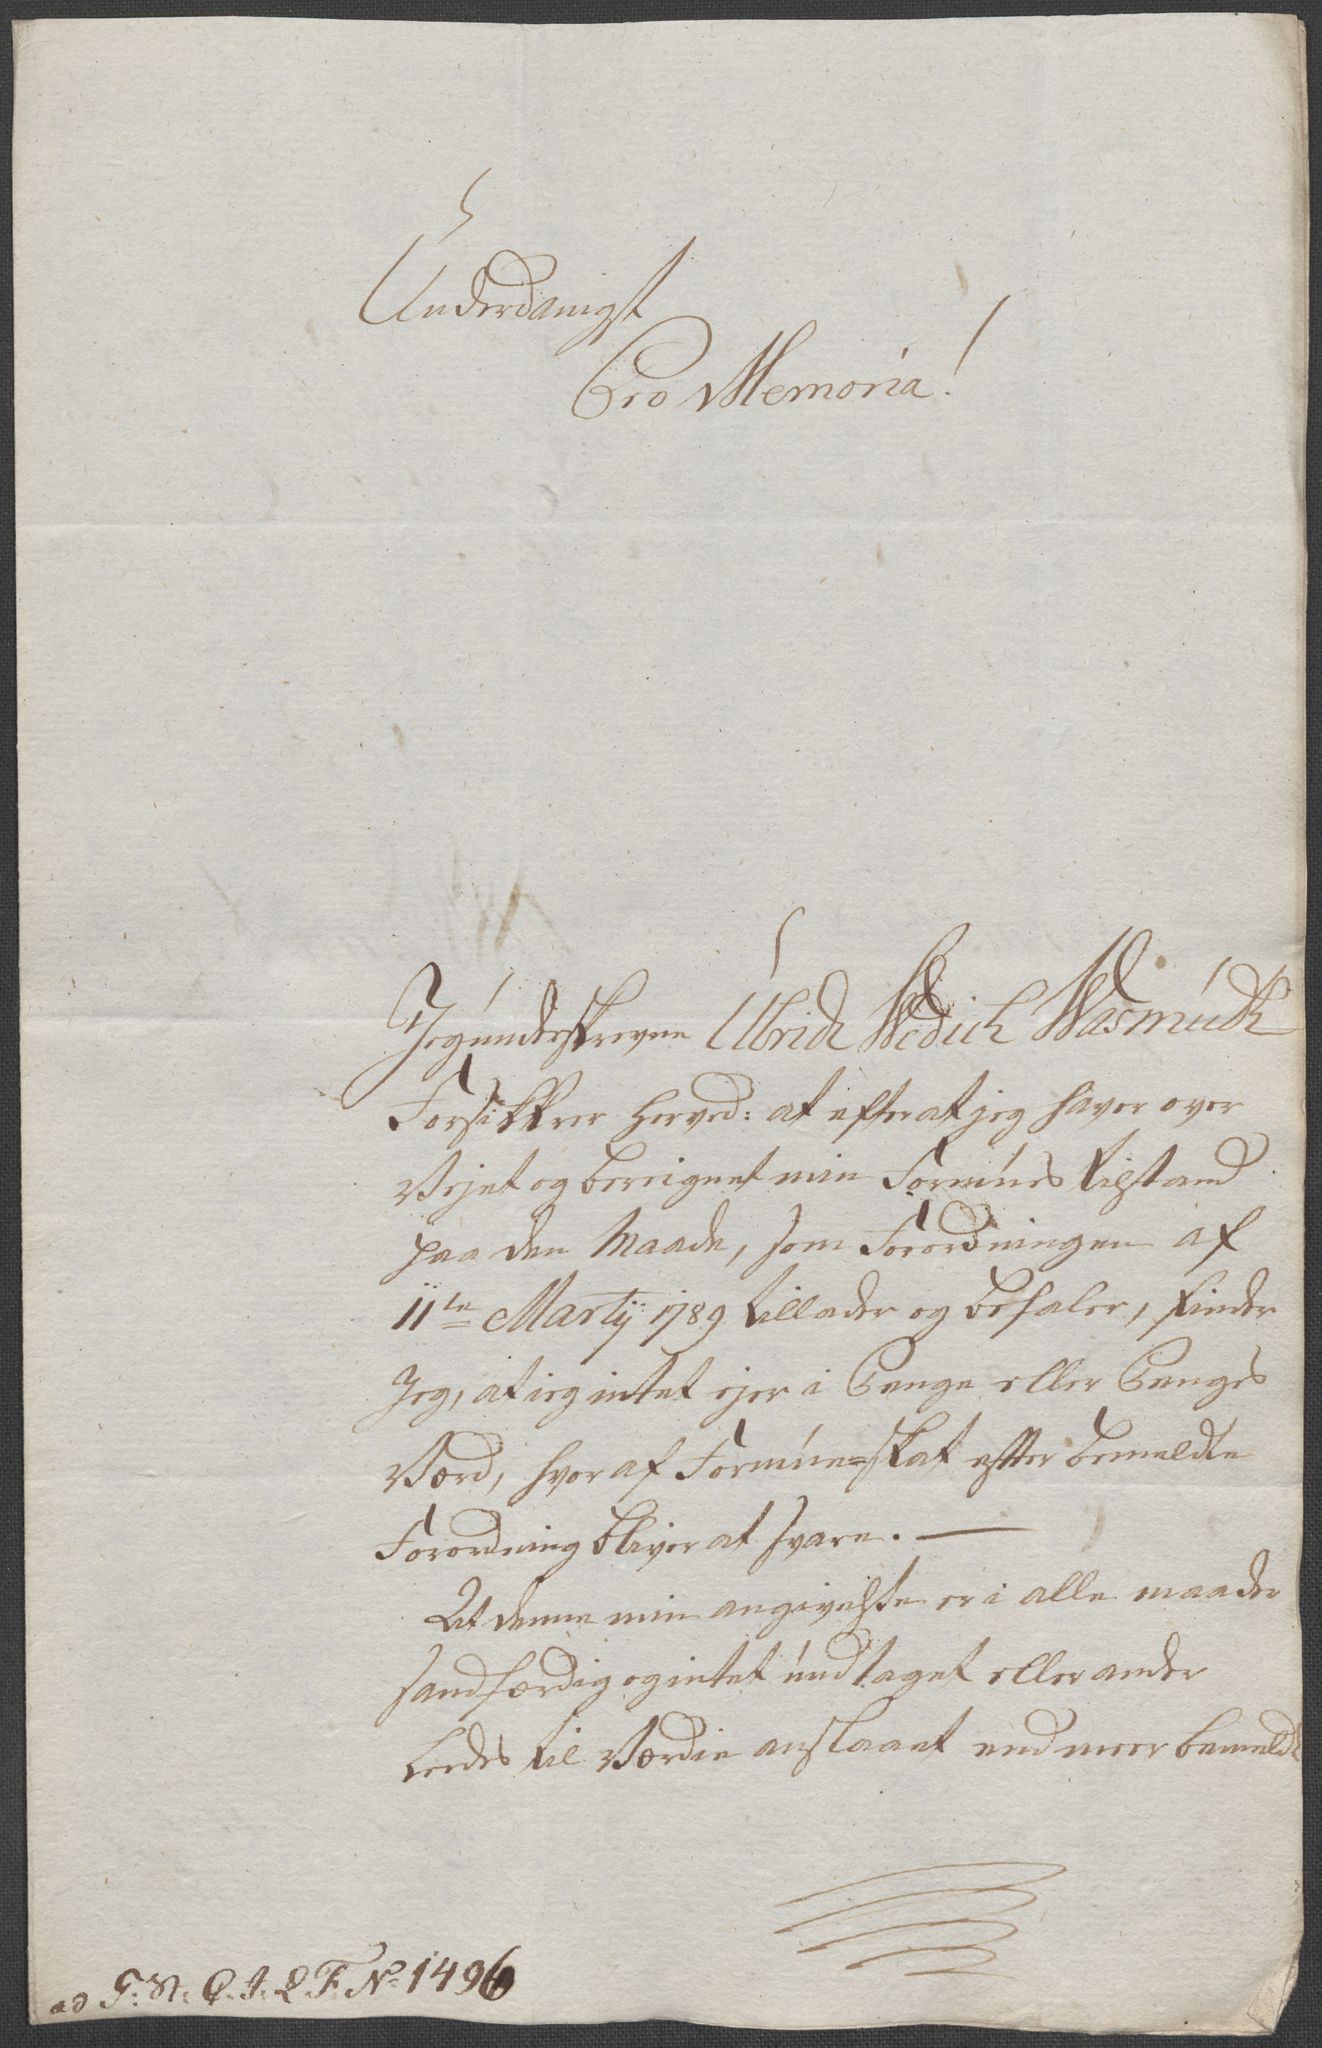 Underdanigst
Pro Memoria!
Jeg underskrevne Ulrich Wedich Wasmuth
Forsikkrer herved: at efter at jeg haver over
Vejet og bereignet min Formues tilstand
paa den Maade, som Forordningen af
11te Martij 1789 tillader og befaler, finder
Jeg, at ieg intet ejer i Penge eller Penges
Værd, hvor af Formue=skat efter bemeldte
Forordning bliver at svare. —
At denne min angivelse er i alle maader
sandfærdig og intet undtaget eller ander
ledes til Værdie anslaaet end meer bemeldt
ad G: St: C. I: L F. No 1496